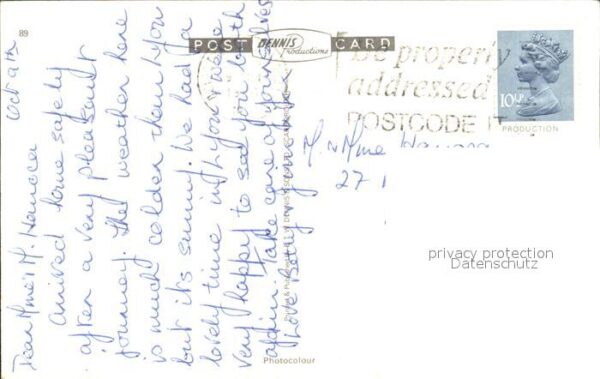 89
POST DENNIS Productions CARD
be properly
addressed
POSTCODE IT
10½P
PRODUCTION
Oct 9th
Dear Mme & M. Hanocca
Arrived home safely
after a very pleasant
journey. The weather here
is much colder than with you
but its sunny. We had a
lovely time with you & were
very happy to see you both
again. Take care of yourselves
Love Betty
M. & Mme
27 1
privacy protection
Datenschutz
Photocolour